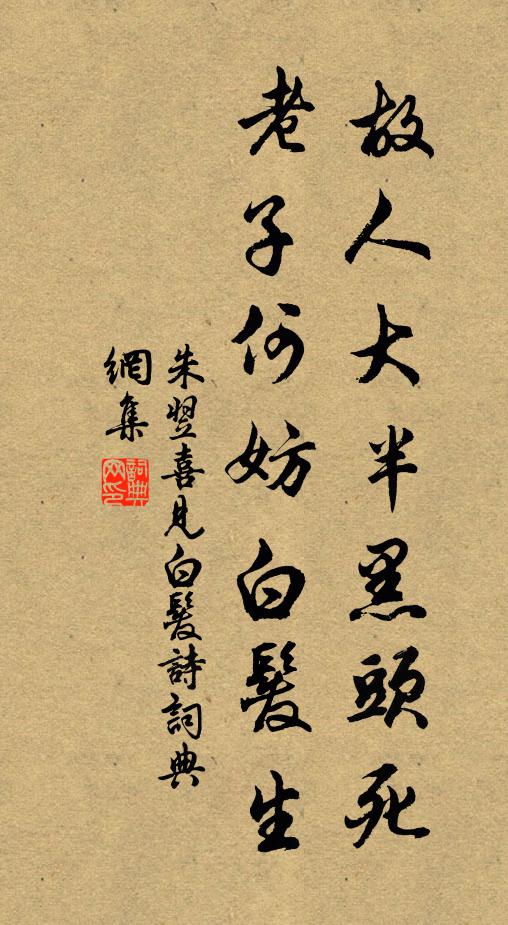 故人大半黑頭死
老子何妨白髮生
朱翌喜見白髮詩詞典
網集
詞典網印